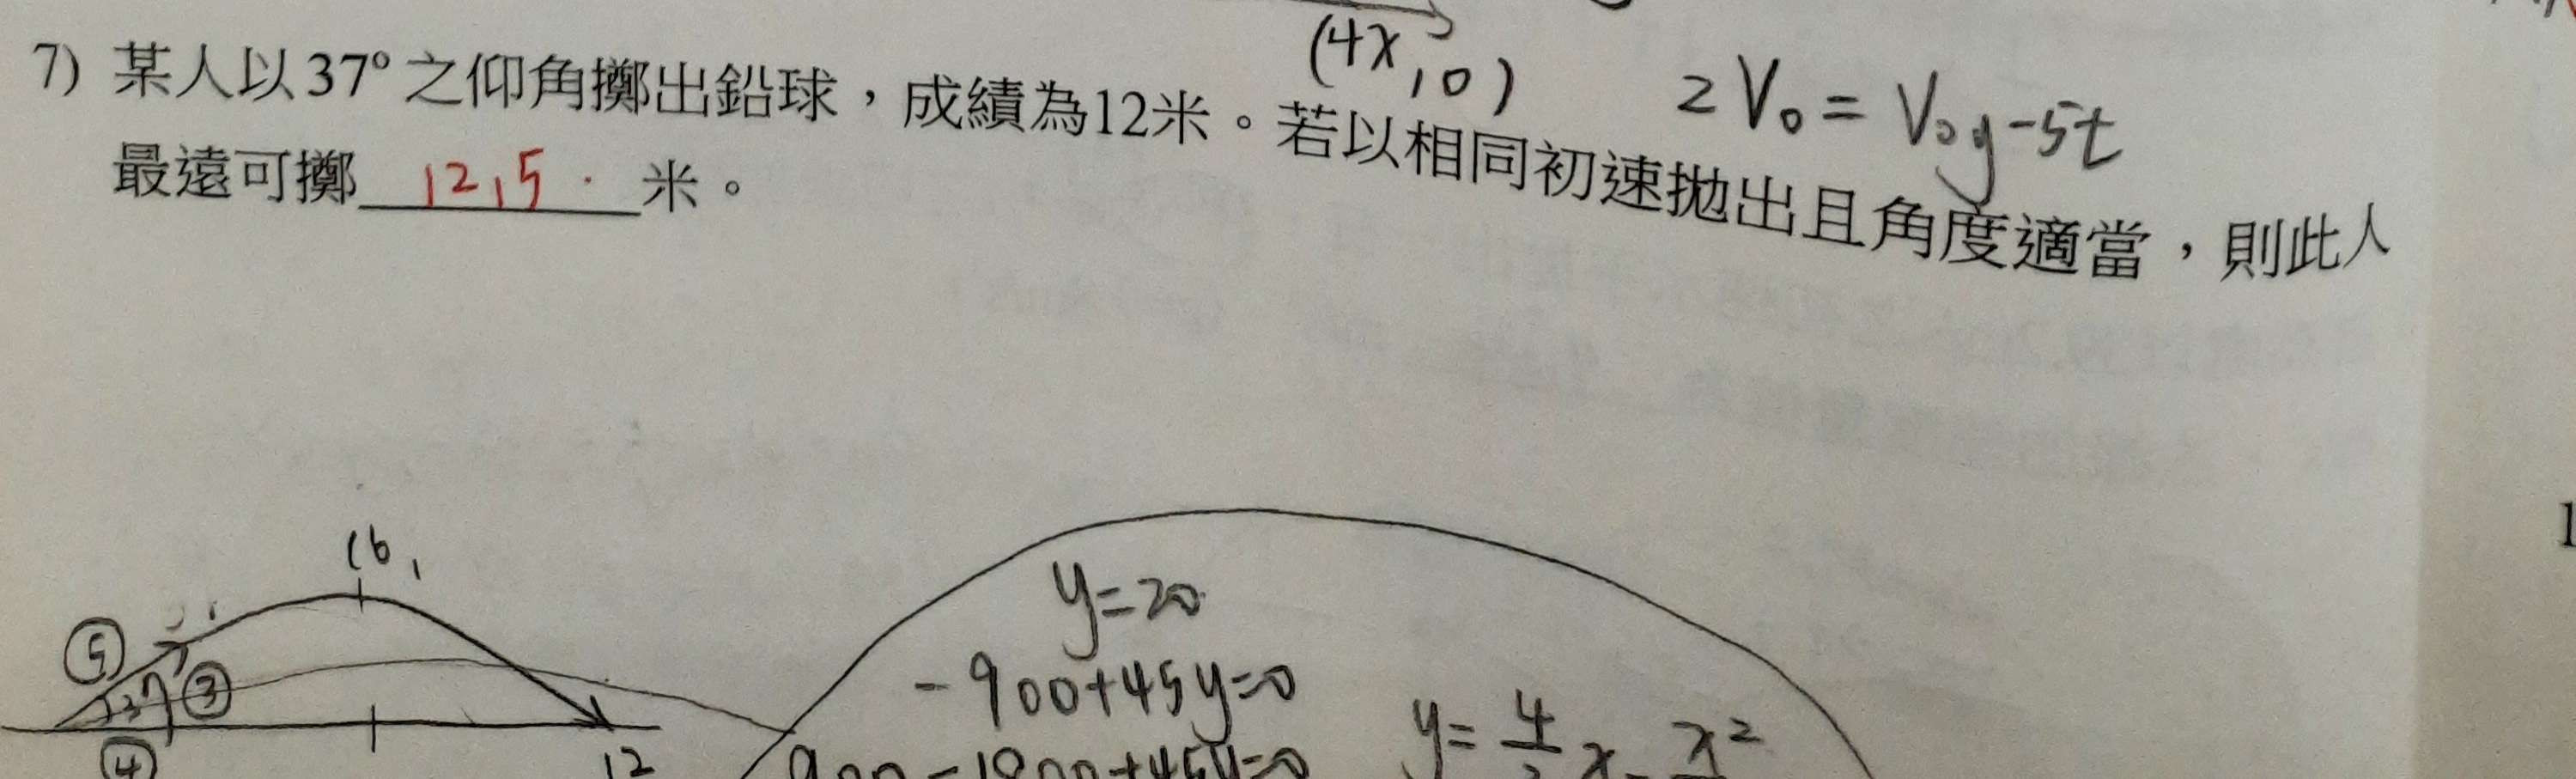 (4x, 10)
2V₀ = V₀y-5t
7) 某人以37°之仰角擲出鉛球，成績為12米。若以相同初速拋出且角度適當，則此人
最遠可擲 12.5 米。
16,
y=20
⑤
37
③
-900+45y=0
y= 4 x - x²
④
12
900-1800+45y=0
1